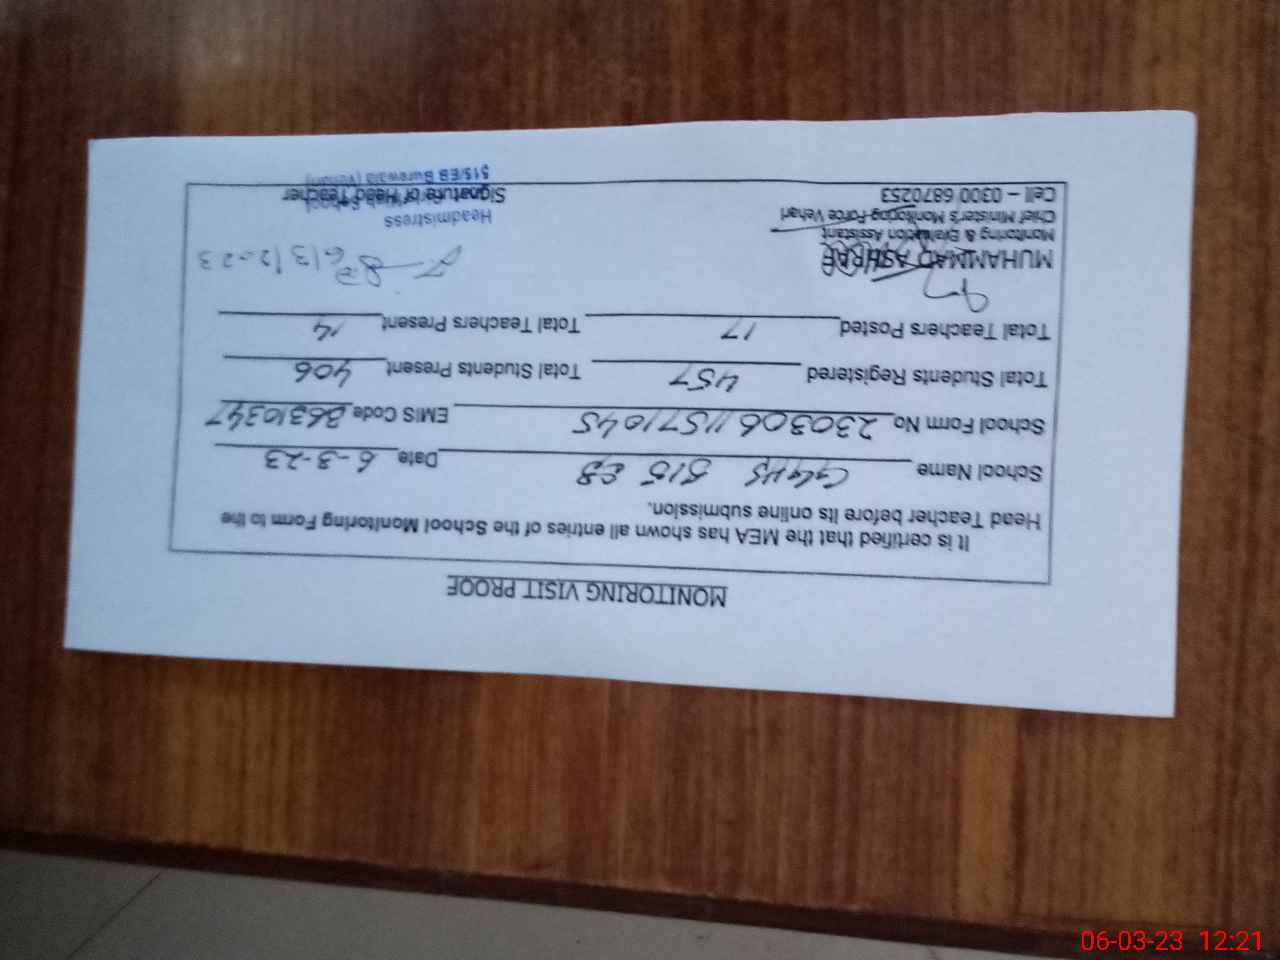 MONITORING VISIT PROOF
It is certified that the MEA has shown all entries of the School Monitoring Form to the
Head Teacher before its online submission.
School Name GGHS 515 EB Date 6-3-23
School Form No 23030611571045 EMIS Code 36310347
Total Students Registered 457 Total Students Present 406
Total Teachers Posted 17 Total Teachers Present 14
6/3/2023
MUHAMMAD ASHRAF
Monitoring & Evaluation Assistant
Chief Minister's Monitoring Force Vehari
Headmistress
Cell – 0300 6870253 Signature of Head Teacher
515/EB Burewala (Vehari)
06-03-23 12:21